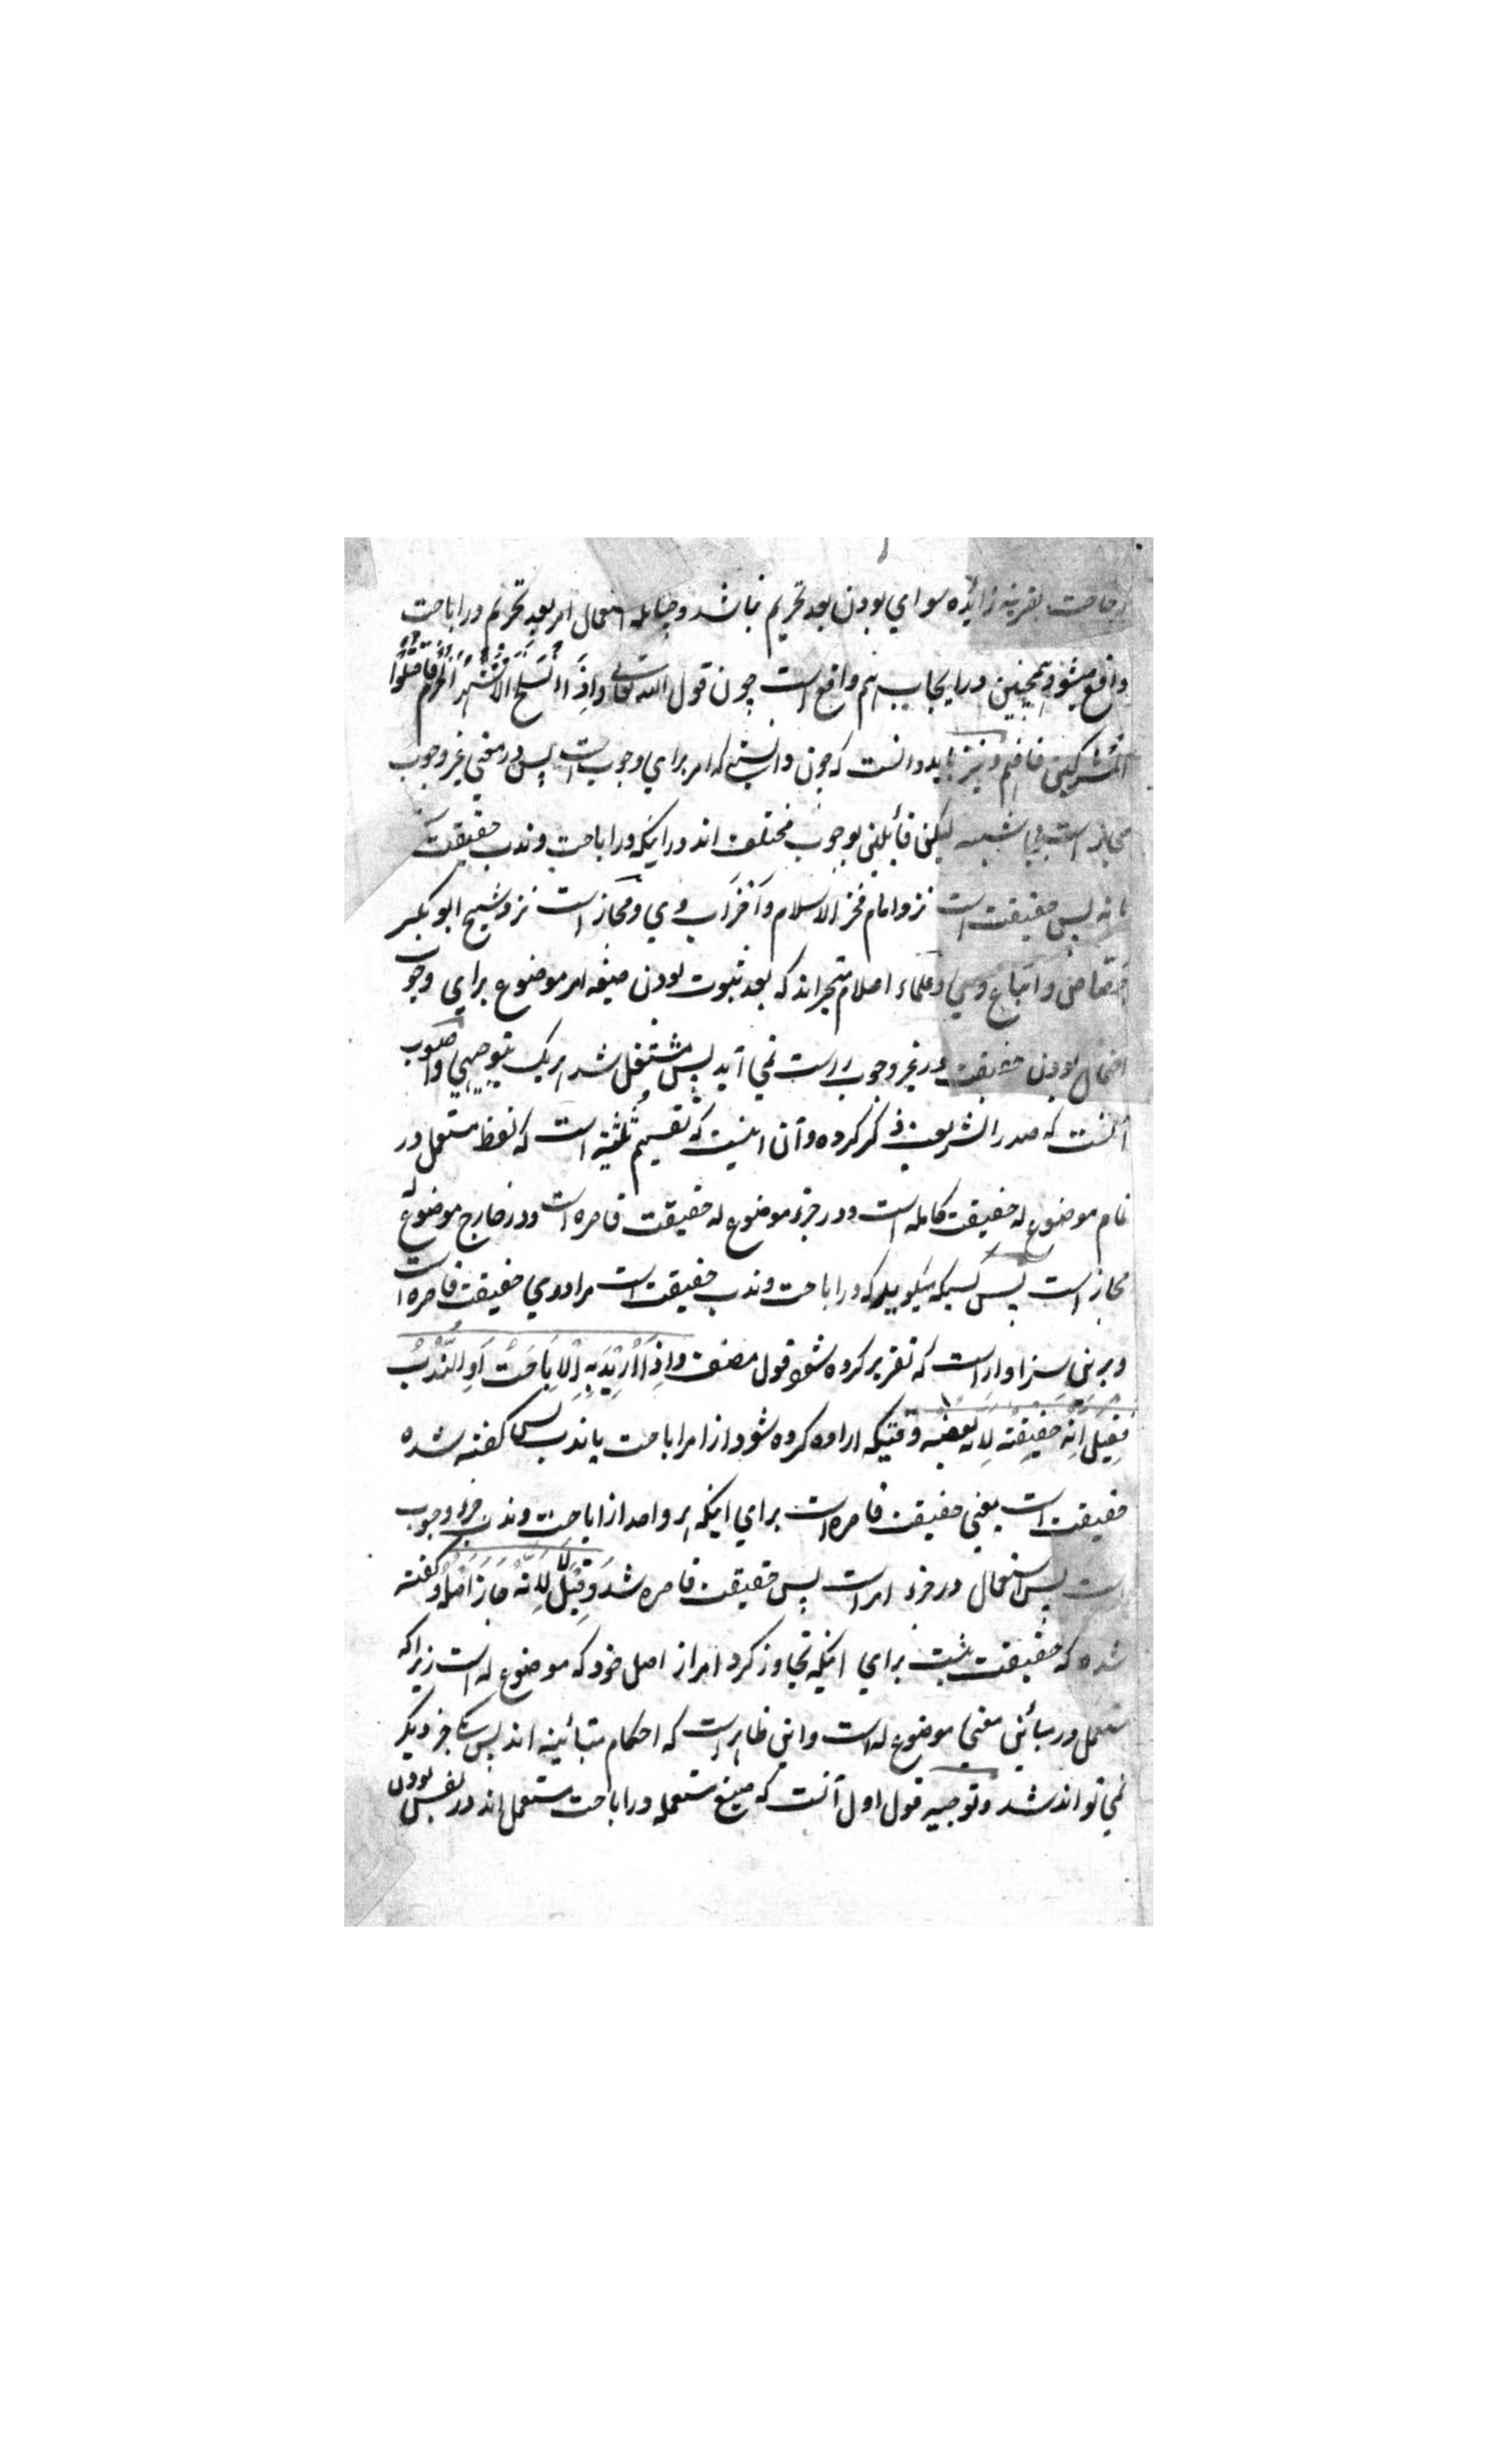 اباحت بقرینه زائده سوای بودن بعد تحریم نباشد و جنابله استعمال امر بعد تحریم در اباحت
واقع میشود و همچنین در ایجاب هم واقع است چون قول الله تعالی وَاِذَا انْسَلَخَ الْاَشْهُرُ الْحُرُمُ فَاقْتُلُوا
المشرکین فافهم و نیز باید دانست که چون دانستی که امر برای وجوب است پس در معنی غیر وجوب
مجاز است بی شبهه لیکن قائلین بوجوب مختلف اند در اینکه در اباحت و ندب حقیقت
یا نه پس حقیقت است نزد امام فخر الاسلام و اَضراب وی و مجاز است نزد شیخ ابو بکر
جصاص و اتباع وی و علماء اعلام متحیر اند که بعد ثبوت بودن صیغه امر موضوع برای وجوب
احتمال بودن حقیقت در غیر وجوب راست نمی آید پس مشتغل شد هر یک بتوجیهی و اصوب
آنست که صدر الشریعه ذکر کرده و آن اینست که تقسیم ثُلٰثیه است که لفظ مستعمل در
تمام موضوع له حقیقت کامله است و در جزء موضوع له حقیقت قاصره است و در خارج موضوع له
مجاز است پس کسیکه میگوید که در اباحت و ندب حقیقت است مراد وی حقیقت قاصره است
و برین سزاوار است که تقریر کرده شود قول مصنف وَاِذَا اُرِیْدَ بِهِ الْاِبَاحَتُ اَوِ النَّدْبُ
فَقِیْلَ اِنَّه حَقِیْقَتَه لِاَنَّه بَعْضُه وقتیکه اراده کرده شود از امر اباحت یا ندب پس گفته شده
حقیقت است یعنی حقیقت قاصره است برای اینکه هر واحد از اباحت و ندب جزء وجوب
است پس استعمال در جزء امر است پس حقیقت قاصره شد وَقِیْلَ لَا لِاَنَّه جَازَ اَصْلَه و گفته
شده که حقیقت نیست برای اینکه تجاوز کرد امر از اصل خود که موضوع له است زیراکه
مستعمل در مبائن معنی موضوع له است و این ظاهر است که احکام متبائنه اند پس یکی جزء دیگر
نمی تواند شد و توجیه قول اول آنست که صیغ مستعمله در اباحت مستعمل اند در نفس بودن